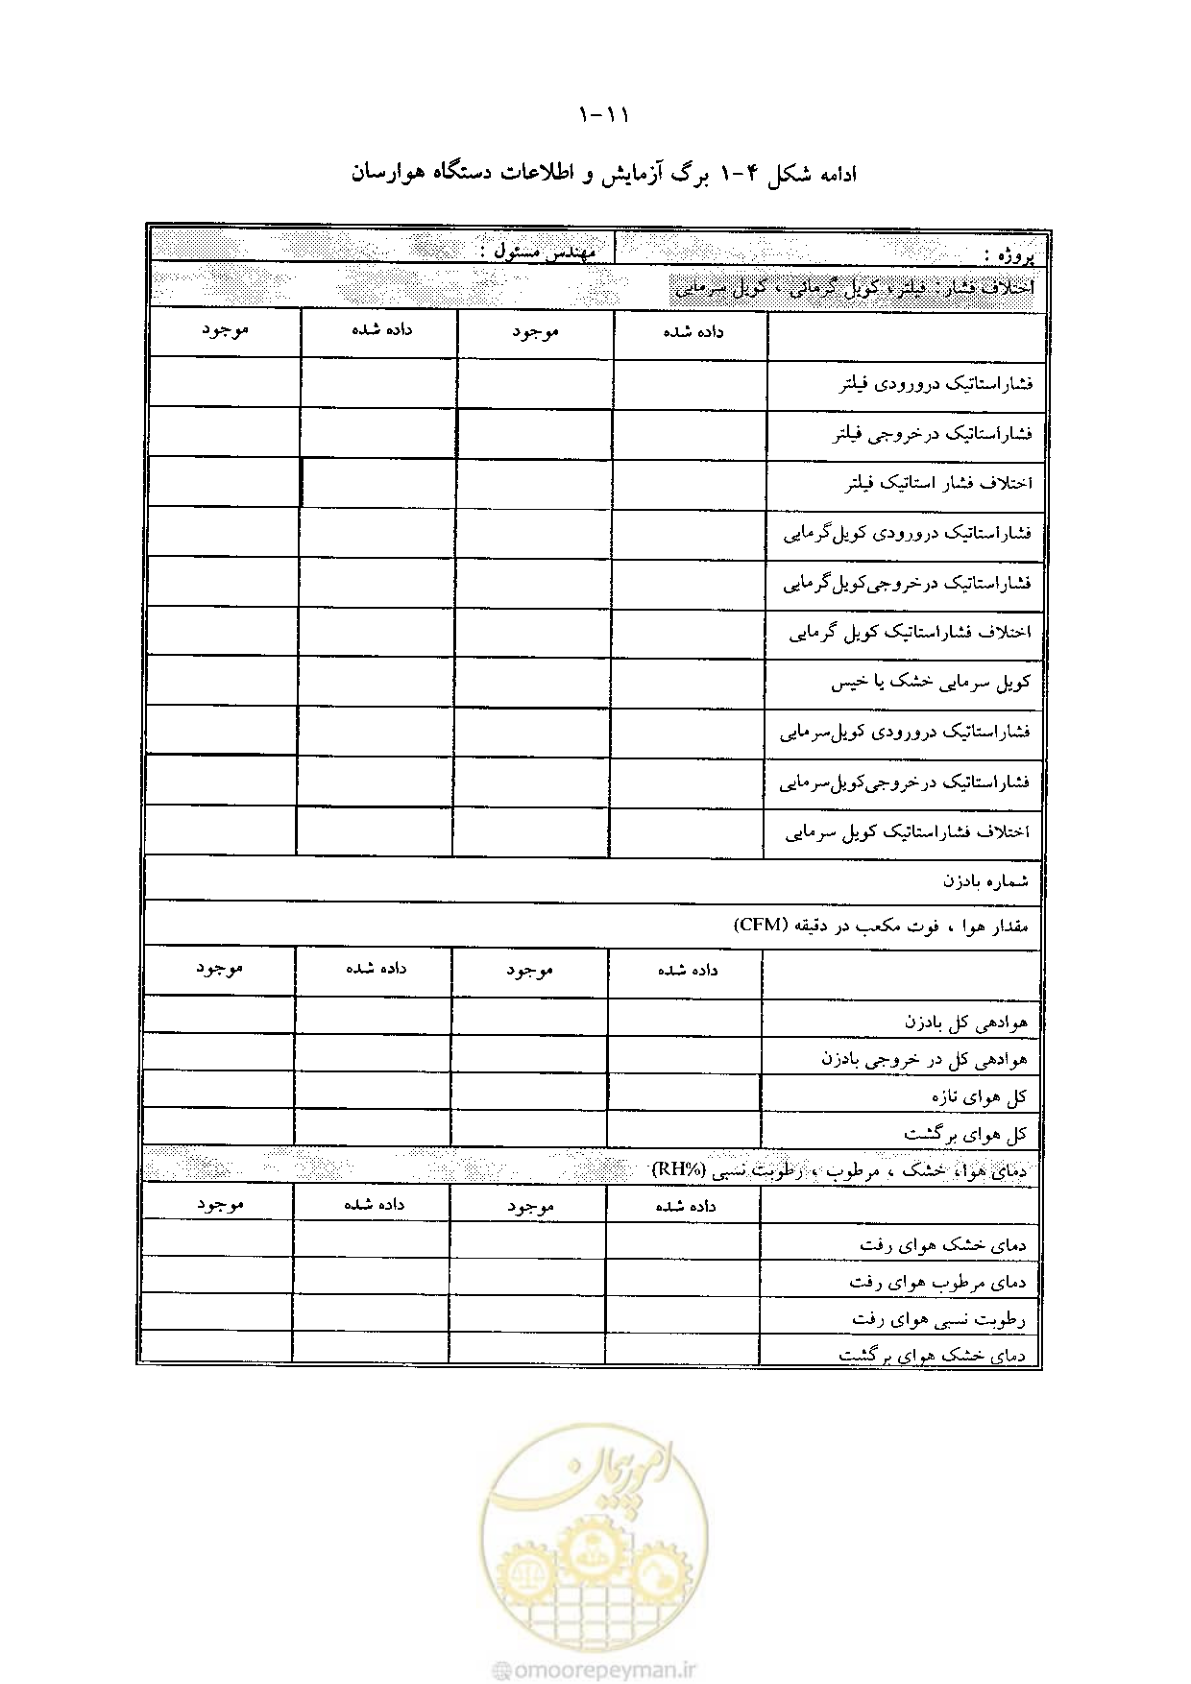 ۱-۱۱
ادامه شکل ۴-۱ برگ آزمایش و اطلاعات دستگاه هوارسان
پروژه : مهندس مسئول :
اختلاف فشار : فیلتر ، کویل گرمائی ، کویل سرمایی
داده شده موجود داده شده موجود
فشاراستاتیک درورودی فیلتر
فشاراستاتیک درخروجی فیلتر
اختلاف فشار استاتیک فیلتر
فشاراستاتیک درورودی کویل‌گرمایی
فشاراستاتیک درخروجی‌کویل‌گرمایی
اختلاف فشاراستاتیک کویل گرمایی
کویل سرمایی خشک یا خیس
فشاراستاتیک درورودی کویل‌سرمایی
فشاراستاتیک درخروجی‌کویل‌سرمایی
اختلاف فشاراستاتیک کویل سرمایی
شماره بادزن
مقدار هوا ، فوت مکعب در دقیقه (CFM)
داده شده موجود داده شده موجود
هوادهی کل بادزن
هوادهی کل در خروجی بادزن
کل هوای تازه
کل هوای برگشت
دمای هوا، خشک ، مرطوب ، رطوبت نسبی (RH%)
داده شده موجود داده شده موجود
دمای خشک هوای رفت
دمای مرطوب هوای رفت
رطوبت نسبی هوای رفت
دمای خشک هوای برگشت
امور پیمان
@omoorepeyman.ir